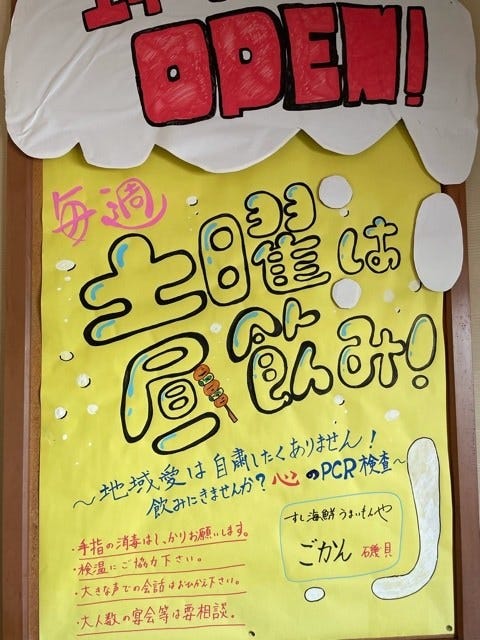 OPEN!
毎週
土曜は
昼飲み!
～地域愛は自粛したくありません!
飲みにきませんか?心のPCR検査～
・手指の消毒はしっかりお願いします。
・検温にご協力下さい。
・大きな声での会話はおひかえ下さい。
・大人数の宴会等は要相談。
すし海鮮うまいもんや
ごかん 磯貝